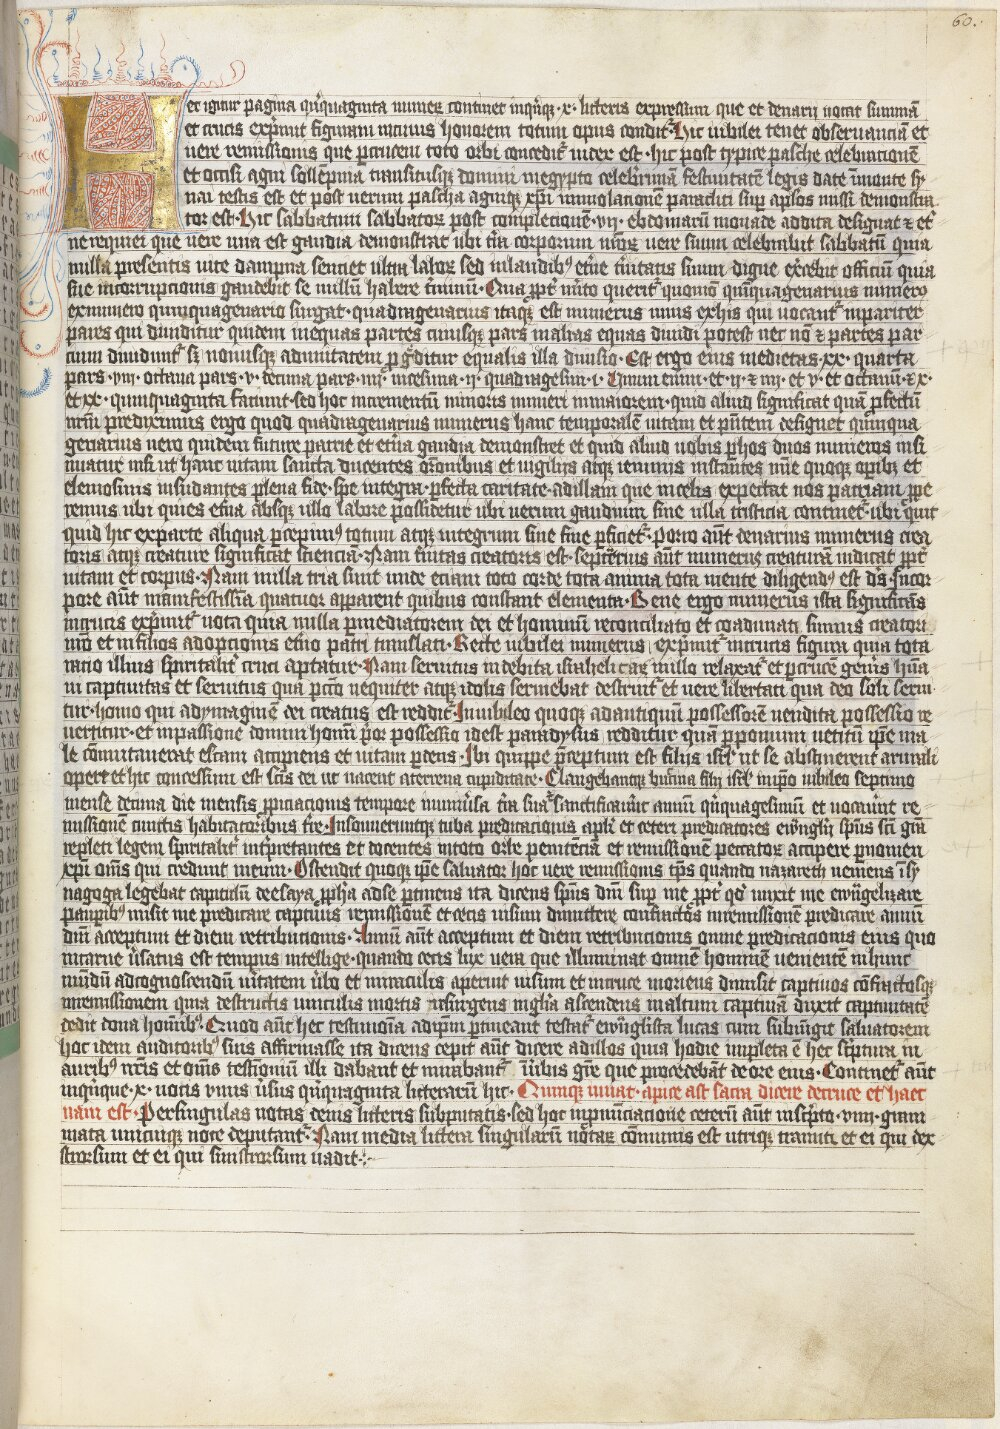 60.
Hec igit̄ pagina qͥnquaginta numeꝝ continet inqͥnqꝫ ·x· litteris expressum que et denarij notat summā
et crucis exp̄mit figuram incuius honorem totum opus condit᷑. Hic iubilei tenet obseruanciā et
uere remissionis que p̱crucem toto orbi concedit᷑ index est · hic post typice pasche celebrationē
et occisi agni sollempnia transitusqꝫ domini inegypto celeb̄rimā festiuitatē legis date īmonte sy
nai testis est et post uerum pascha agniqꝫ xp̄i immolacionē paracliti sup̱ ap̄los missi demonstra
tor est · Hic sabbatum sabbatoꝝ post completionē ·vii· ebdomarū monade addita designat ⁊ et̄
ne requiei que uere una est gaudia demonstrat ubi t̄ia corporum nr̄oꝝ uere suum celebrabit sabbatū quia
nulla presentis uite dampna senciet ultra laboꝝ sed inlaudibꝰ et̄ne t̄nitatis suum digne exercebit officiū quia
sine incorrupcionis gaudebit se nullū habere t̄minū · Qua ꝓpt᷑ m̄ito querit᷑ quomō quīquagenarius numero
exnumero quinquagenario surgat · quadragenarius itaqꝫ est numerus unus exhis qui uocant᷑ inpariter
pares qui diuiditur quidem inequas partes cuiusqꝫ pars inalias equas diuidi potest nec nō ⁊ partes par
cium diuidunt᷑ sꝫ nonusqꝫ adunitatem ꝓḡditur equalis illa diuisio · Est ergo eius medietas ·xx· quarta
pars ·viii· octaua pars ·v· decima pars ·iiii· uicesima ·ii· quadragesim̄ ·i· Unum enim · et ·ii· ⁊ iiii · et v · et octauū · ⁊ x ·
et xx · quinquaginta faciunt · sed hoc incrementū minoris numeri inmaiorem · quid aliud significat quā ꝓfectū
nr̄m prediximus ergo quod quadragenarius numerus hanc temporalē uitam et p̄sentem designet quinqua
genarius uero quidem future patrie et et̄na gaudia demonstret et quid aliud nobis p̱hos duos numeros insi
nuatur nisi ut hanc uitam sancta ducentes or̄onibus et uigilijs atqꝫ ieiunijs instantes m̄ie quoqꝫ opibꝫ et
elemosinis insudantes plena fide · spe integra · p̱fecta caritate · adillam que incelis expectat nos patriam ꝓpe
remus ubi quies et̄na absqꝫ ullo labore possidetur ubi uerum gaudium sine ulla tristicia continet᷑ · ubi qͥcͥqͥd
quid hic exparte aliqua p̱cepimꝰ totum atqꝫ integrum sine fine p̱ficiet᷑ · Porro aūt denarius numerus crea
toris atqꝫ creature significat scienciā · Nam t̄nitas creatoris est · septenarius aūt numerus creaturā indicat ꝓpt᷑
uitam et corpus · Nam inilla tria sunt unde eciam toto corde tota anima tota mente diligendꝰ est dn̄s · Incor
pore aūt manifestissīa quatuor apparent quibus constant elementa · Bene ergo numerus iste significans
incrucis exp̄mit᷑ nota quia inilla p̱mediatorem dei et hominū reconciliato et coadunati sumus creatori
nr̄o et infilios adopcionis et̄no patri translati · Recte iubilei numerus exp̄mit᷑ incrucis figura quia tota
racio illius spiritalit᷑ cruci aptatur · Nam seruitus indebita israhelicaꝫ inillo relaxat᷑ et p̱crucē gen̄is hūa
ni captiuitas et seruitus qua pctō nequiter atqꝫ idolis seruiebat destruit᷑ et uere libertati qua deo soli serui
tur · homo qui adymaginē dei creatus est reddit᷑ · Iniubileo quoqꝫ adantiquū possessorē uendita possessio re
uertitur · et inpassione domini homī por possessio idest paradysus redditur quā p̱pomum uetitū ip̄e ma
le cōmutauerat escam accipiens et uitam p̱dens · Ibi quippe p̄ceptum est filijs isrl̄ ut se abstinerent arurali
opere et hic concessum est scīs dei ut uacent aterrena cupiditate · Clangebantqꝫ bucina filij isrl̄ in ip̄o iubileo septimo
mense decima die mensis ꝓpiciacionis tempore inuniu̇sa t̄ra sua · sanctificantes annū qͥnquagesimū et uocau̇nt re
missionē cunctis habitatoribus tr̄e · Insonueruntqꝫ tuba predicacionis apl̄i et ceteri predicatores ewāglij sp̄us sc̄i grā
repleti legem spiritalit᷑ int̄pretantes et docentes intoto orbe penitēciā et remissionē peccatoꝝ accipere p̱nomen
xp̄i om̄s qui credunt ineum · Ostendit quoqꝫ ip̄e saluator hoc uere remissionis tp̄s quando nazareth ueniens ī sy
nagoga legebat capitulū de esaya ꝓpha adse p̱tinens ita dicens sp̄us dn̄i sup̱ me ꝓpt᷑ qd̄ unxit me ewāgelizare
paup̱ibꝰ misit me predicare captiuis remissionē et cecis uisum dimittere confractos inremissionē predicare annū
dn̄i acceptum et diem retribucionis · Annū aūt acceptum et diem retribucionis omne predicacionis eius quo
incarne u̇satus est tempus intellige · quando cecis lux uera que illuminat omnē hominē uenientē inhunc
mūdū adcognoscendū u̇itatem u̇bo et miraculis aperuit uisum et incruce moriens dimisit captiuos cōfractosqꝫ
inremissionem quia destructis uinculis mortis resurgens inglia ascendens inaltum captiuā duxit captiuitatē
dedit dona hominibꝰ · Quod aūt hec testimonia adip̄m p̱tineant testat᷑ ewāglista lucas cum subiūgit saluatorem
hoc idem auditoribꝰ suis affirmasse ita dicens cepit aūt dicere adillos quia hodie impleta ē hec sc̄ptura in
auribꝰ ur̄is et om̄s testimoniū illi dabant et mirabant᷑ inu̇bis gr̄e que procedebāt de ore eius · Continet᷑ aūt
inqͥnqꝫ ·x· uocis unius u̇sus qͥnquaginta litterarū hic · Qumqꝫ iuuat · apice ast sacra dicere de cruce et haec
nam est · Persingulas notas denis litteris subputatis · sed hoc inpnūciacione ceterū aūt inscipto · viiij · gram
mata unicuiqꝫ note deputant᷑ · Nam media littera singularū notaꝝ cōmunis est utriqꝫ tramiti et ei qui dex
trorsum et ei qui sinistrorsum uadit ·